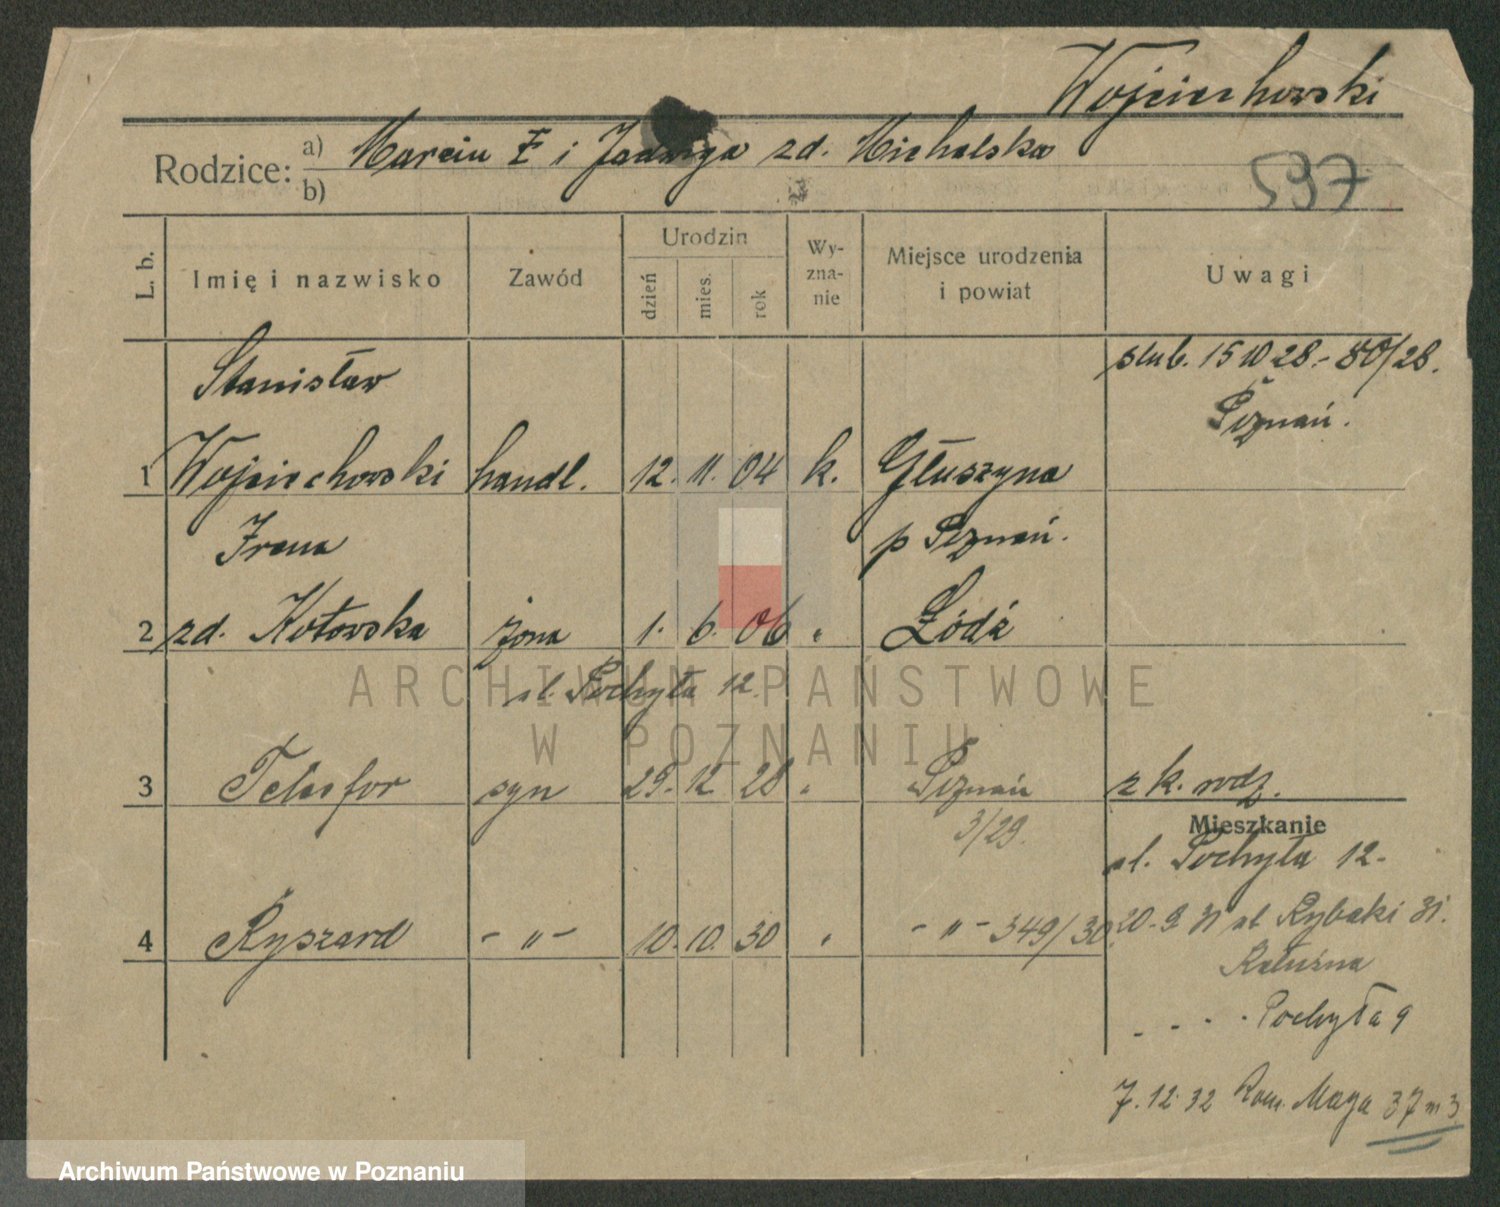 Wojciechowski
Rodzice: a) Marcin i Jadwiga zd. Michalska
b)
597
L. b.
Imię i nazwisko
Zawód
Urodzin
dzień
mies.
rok
Wy-
zna-
nie
Miejsce urodzenia
i powiat
Uwagi
Stanisław
ślub. 15 10 28.- 80/28.
Poznań.
1 Wojciechowski handl. 12. 11. 04 k. Głuszyna
Irena
p Poznań.
2 zd. Kotowska żona 1. 6. 06 " Łódź
ul. Pochyła 12.
ARCHIWUM PAŃSTWOWE
W POZNANIU
3 Telesfor syn 29. 12 28 " Poznań z k. rodz.
3/29.
Mieszkanie
ul. Pochyła 12-
4 Ryszard - " - 10. 10. 30 " - " - 349/30
20-9 31 ul Rybaki 31.
Pochyła 9
7. 12 32 Maya 37 m 3
Archiwum Państwowe w Poznaniu